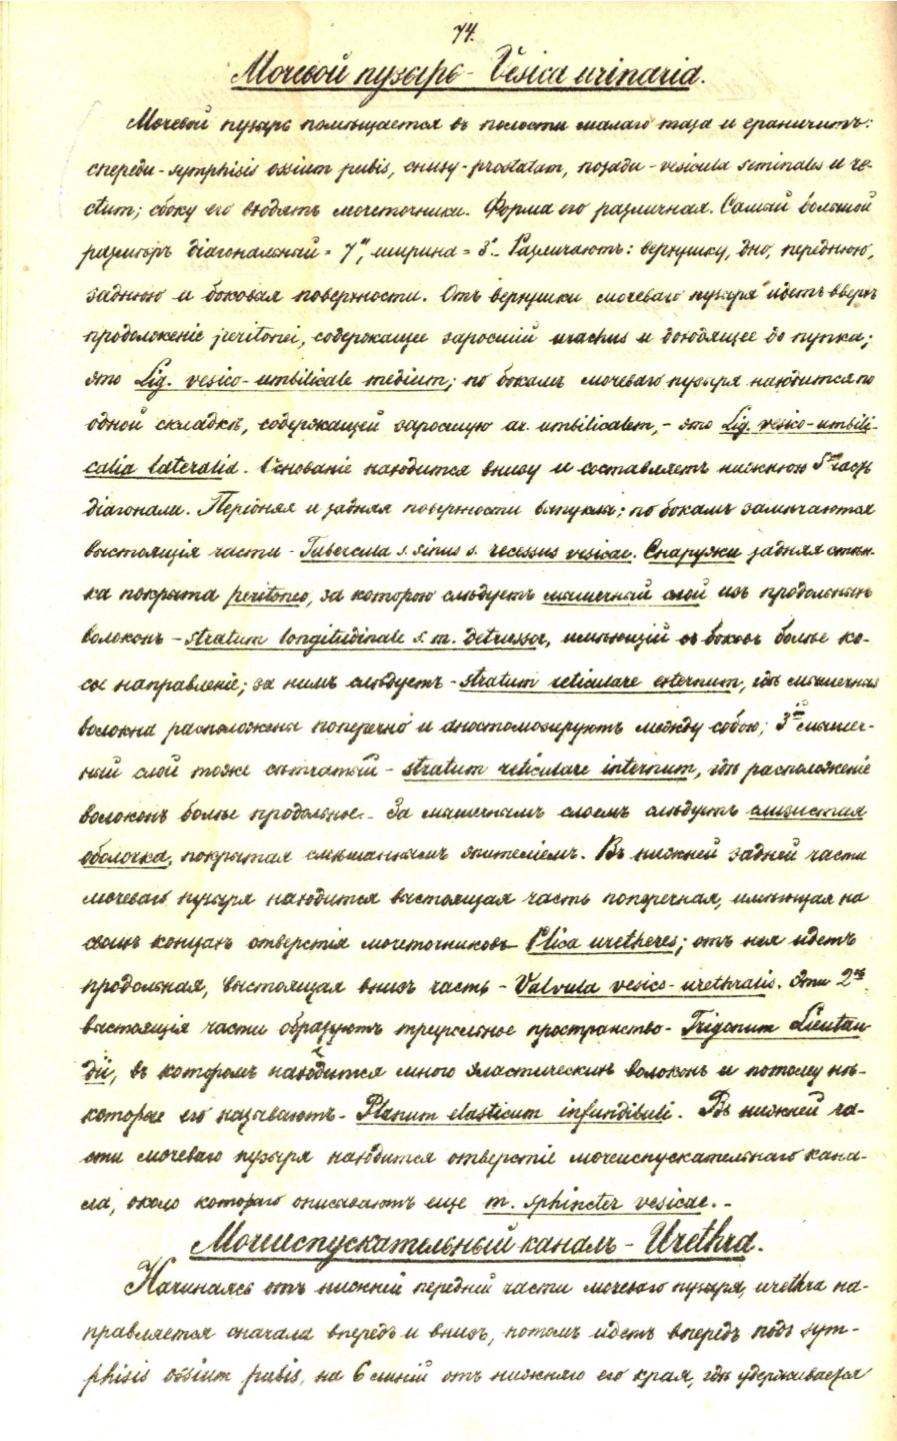 74.
Мочевой пузырь - Vesica urinaria.
Мочевой пузырь помѣщается въ полости малаго таза и граничитъ:
спереди - symphisis ossium pubis, снизу - prostatam, позади - vesicula seminales и re-
ctum; сбоку его входятъ мочеточники. Форма его различная. Самый большой
размѣръ діагональный = 7", ширина = 3". Различаютъ: верхушку, дно, переднюю,
заднюю и боковая поверхности. Отъ верхушки мочеваго пузыря идетъ вверхъ
продолженіе peritonei, содержащее заросшій urachus и доходящее до пупка;
это Lig. vesico-umbilicale medium; по бокамъ мочеваго пузыря находится по
одной складкѣ, содержащей заросшую ar. umbilicalem, - это Lig. vesico-umbili-
calia lateralia. Основаніе находится внизу и составляетъ нижнюю 5ую часть
діагонали. Передняя и задняя поверхности выпуклы; по бокамъ замѣчаются
выстоящія части - Tubercula s. sinus s. recessus vesicae. Снаружи задняя стѣн-
ка покрыта peritoneo, за которою слѣдуетъ мышечный слой изъ продольныхъ
волоконъ - stratum longitudinale s. m. detrussor, имѣющій съ боковъ болѣе ко-
сое направленіе; за нимъ слѣдуетъ - stratum reticulare externum, гдѣ мышечныя
волокна расположены поперечно и анастомозируютъ между собою; 3ій мышеч-
ный слой тоже сѣтчатый - stratum reticulare internum, гдѣ расположеніе
волоконъ болѣе продольное. - За мышечнымъ слоемъ слѣдуетъ слизистая
оболочка, покрытая смѣшаннымъ эпителіемъ. Въ нижней задней части
мочеваго пузыря находится выстоящая часть поперечная, имѣющая на
своихъ концахъ отверстія мочеточниковъ - Plica uretheres; отъ нея идетъ
продольная, выстоящая внизъ часть - Valvula vesico-urethralis. Эти 2ѣ
выстоящія части образуютъ треугольное пространство - Trigonum Lieutau-
dii, въ которомъ находится много эластическихъ волоконъ и потому нѣ-
которые его называютъ - Planum elasticum infundibuli. Въ нижней ча-
сти мочеваго пузыря находится отверстіе мочеиспускательнаго кана-
ла, около котораго описываютъ еще m. sphincter vesicae. -
Мочеиспускательный каналъ - Urethra.
Начинаясь отъ нижней передней части мочеваго пузыря, urethra на-
правляется сначала впередъ и внизъ, потомъ идетъ впередъ подъ sym-
phisis ossium pubis, на 6 линій отъ нижняго его края, гдѣ удерживается